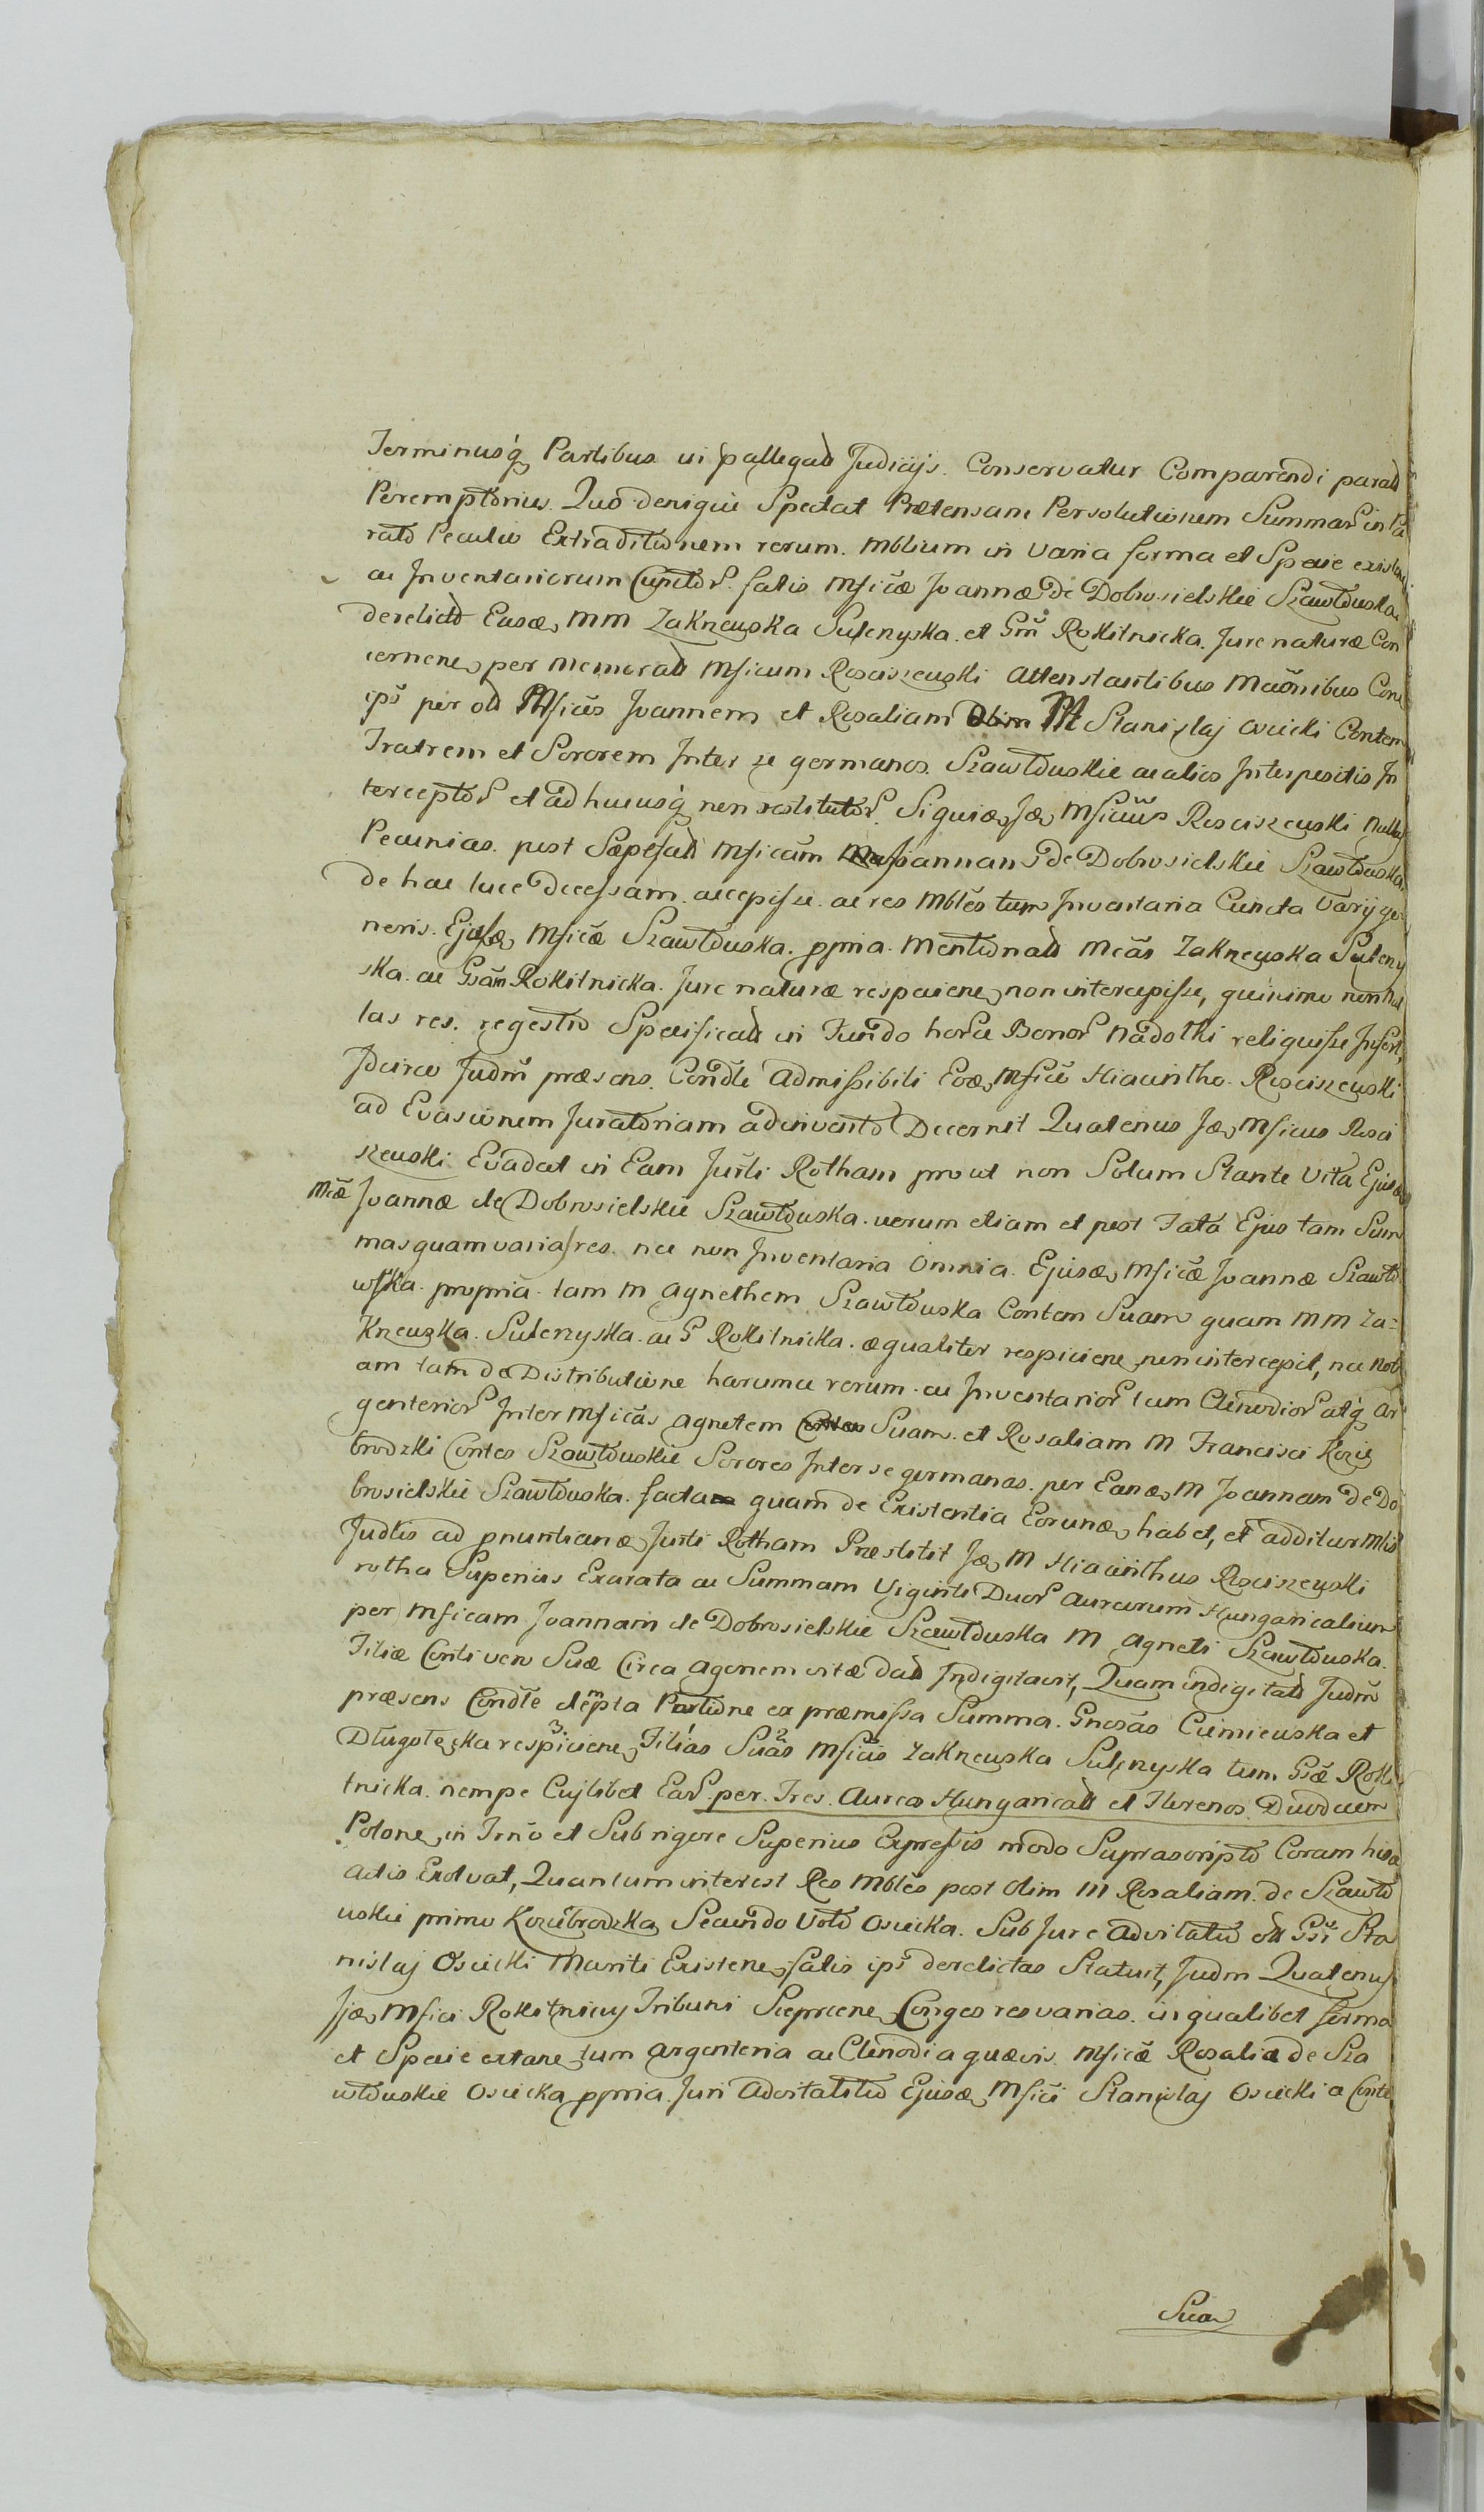 Terminusq Partibus in pallegatt Judicijs. Conservatur Comparendi paratt
Peremptorius. Quo denique Spectat Prætensam Persolutionem Summar in Pa
rato Peculio Extraditionem rerum. Mblium in varia forma et Specie existen
ac Inventariorum Cunctor. fatis Mficæ Joannæ de Dobrosielskie Szawłowska
derelictt Easæ, MM Zakrzewska Sulenyska. et Gm Rokitnicka. Jure naturæ Con
cernene, per memoratt Mficum Rosciszewski attenstantibus Mãonibus Con
ips per ott Mficos Joannem et Rosaliam Olim M Stanislaj Osiecki Contem
Fratrem et Sororem Inter se germanos. Szawłowskie ac alios Interpositis In
terceptor et adhucusq non restitutor. Siquidæ, Jæ, Mficuus Rosciszewski Nullas
Pecunias. post Sæpefatt Mficam Joannam de Dobrosielskie Szawłowska
de hac luce Decessam. accepisse. ac res Mbles tum Inventaria Cuncta varij ge
neris. Ejusdæ, Mficæ Szawłowska. ppria. Mentionatt Mcas Zakrzewska Suleny
ska. ac Gsam Rokitnicka. Jure naturæ respiciene, non intercepisse, quinimo nonnul
las res. regestro Specificatt in Fundo horce Bonor Nadolki reliquisse Infert,
Idcirco Judm præsens. Condte Admissibili Eoæ, Mfico Hiacintho. Rosciszewski
ad Evasionem Juratoriam adinvento Decernit Quatenus Jæ, Mficus Rosci
szewski Evadat in Eam Jurti Rotham prout non Solum Stante Vita Ejusdæ
Mcæ Joannæ de Dobrosielskie Szawłowska. verum etiam et post Fata Ejus tam Sum
mas quam varias res. nec non Inventaria Omnia. Ejusæ, Mficæ Joannæ Szawło
wska. propria. tam M Agnethem Szawłowska Contem Suam quam MM Za=
krzewska. Sulenyska. ac G Rokitnicka. æqualiter respiciene, non intercepit, nec noti
am tam de Distributione harumce rerum. ac Inventarior tum Clenodior atq Ar
genterior Inter Mficas Agnetem Suam. et Rosaliam M Francisci Kozie
brodzki Contes Szawłowskie Sorores Inter se germanas. per Eanæ, M Joannam de Do
brosielskie Szawłowska. facta quam de Existentia Eorunæ, habet, et additur Mlis
Judtis ad pnuntianæ, Jurti Rotham Præstitit Jæ, M Hiacinthus Rosciszewski
rotha Superius Exarata ac Summam Viginti Duor Aureorum Hungaricalium
per Mficam Joannam de Dobrosielskie Szawłowska M Agneti Szawłowska.
Filiæ Conti vero Suæ Circa Agonem vitæ datt Indigitavit, Quam indigitatt Judm
præsens Condte dempta Portione ex præmissa Summa. Gnosas Ciemiewska et
Długołęska respiciene, Filias Suas Mficas Zakrzewska Sulenyska tum Gsæ Roki
tnicka. nempe Cujlibet Ear per. Tres. Aureos Hungaricatt et Florenos. Duodecem
Polone, in Trno et Sub rigore Superius Expressis modo Suprascripto Coram hisæ
Actis Exolvat, Quantum interest Res Mbles post Olim M Rosaliam. de Szawło
wskie primo Koziebrodzka Secundo Voto Osiecka. Sub Jure Advitatio ott Gsi Sta
nislaj Osiecki Mariti Existene, fatis ips derelictas Statuit, Judm Quatenus
Jjæ, Mfici Rokitnicy Tribuni Scepriene, Conges res varias. in qualibet forma
et Specie extane, tum Argenteria ac Clenodia quævis. Mficæ Rosaliæ de Sza
włowskie Osiecka, ppria. Juri Advitalitio Ejusæ, Mfici Stanislaj Osiecki a Conte
Sua